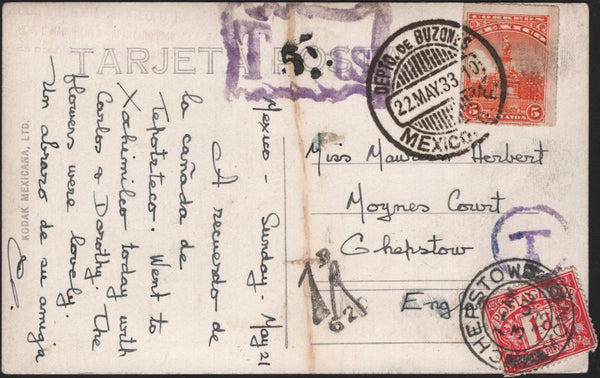 TARJETA POS
T 5 cs
CORREOS
MEXICO
5 5
DEPTO. DE BUZONES
22.MAY.33
MEXICO
Mexico - Sunday - May 21
A recuerdo de
la cañada de
Tepotzteco. Went to
Xohimilco today with
Carlo & Dorothy. The
flowers were lovely.
Un abrazo de su amiga
C.
KODAK MEXICANA, LTD.
Miss Herbert
Moynes Court
Chepstow
Eng
T
1d
CHEPSTOW
1